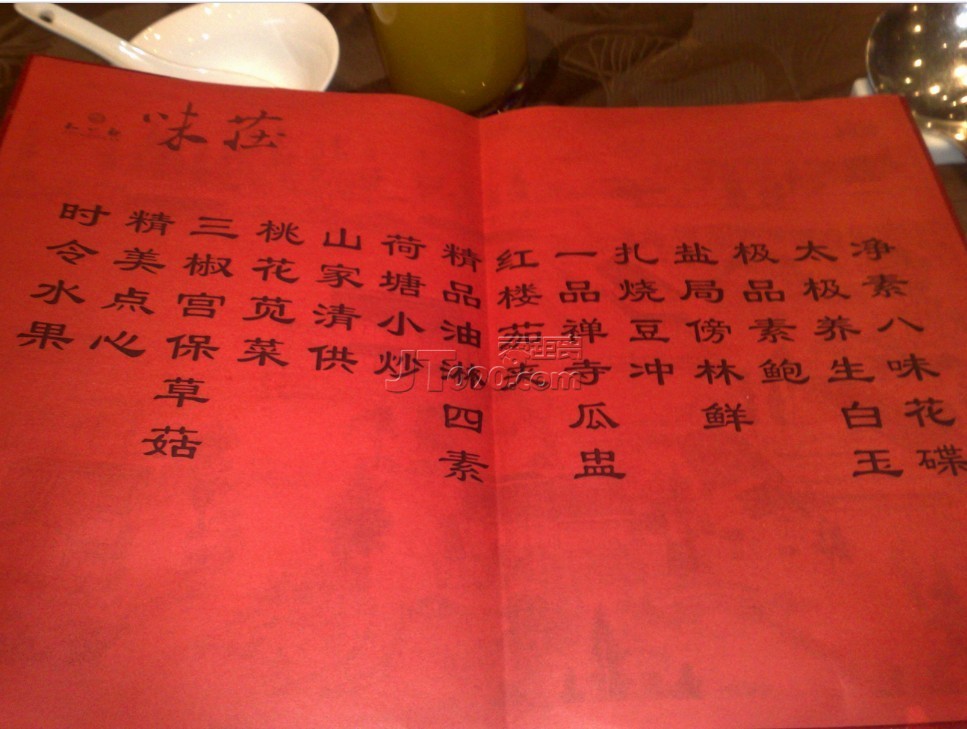 味庄
净素八味花碟
太极养生白玉
极品素鲍
盐局傍林鲜
扎烧豆冲
一品禅寺瓜盅
红楼茄夹
精品油淋四素
荷塘小炒
山家清供
桃花苋菜
三椒宫保草菇
精美点心
时令水果
JT000.com